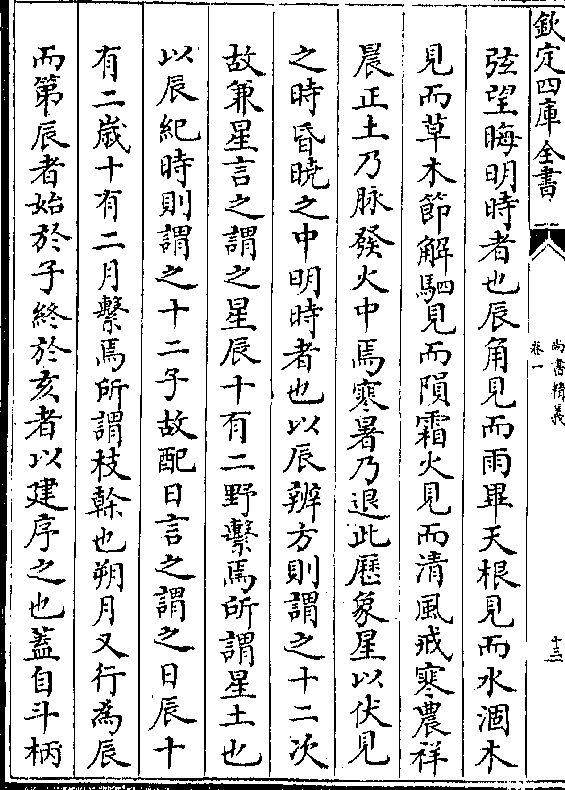 欽定四庫全書
尚書精義
卷一
十三
弦望晦明時者也辰角見而雨畢天根見而水涸木
見而草木節解駟見而隕霜火見而清風戒寒農祥
晨正土乃脉發火中焉寒暑乃退此厯象星以伏見
之時昏曉之中明時者也以辰辨方則謂之十二次
故兼星言之謂之星辰十有二野繫焉所謂星土也
以辰紀時則謂之十二子故配日言之謂之日辰十
有二歲十有二月繫焉所謂枝幹也朔月又行為辰
而第辰者始於子終於亥者以建序之也蓋自斗柄